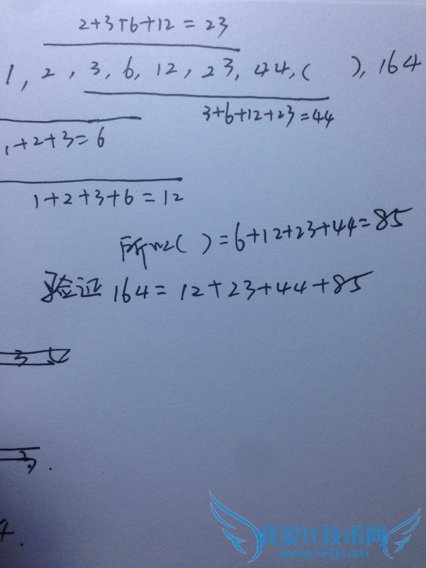 2+3+6+12=23
1, 2, 3, 6, 12, 23, 44, ( ), 164
3+6+12+23=44
1+2+3=6
1+2+3+6=12
所以( )=6+12+23+44=85
验证 164=12+23+44+85
3
2
4.
我爱IT技术网